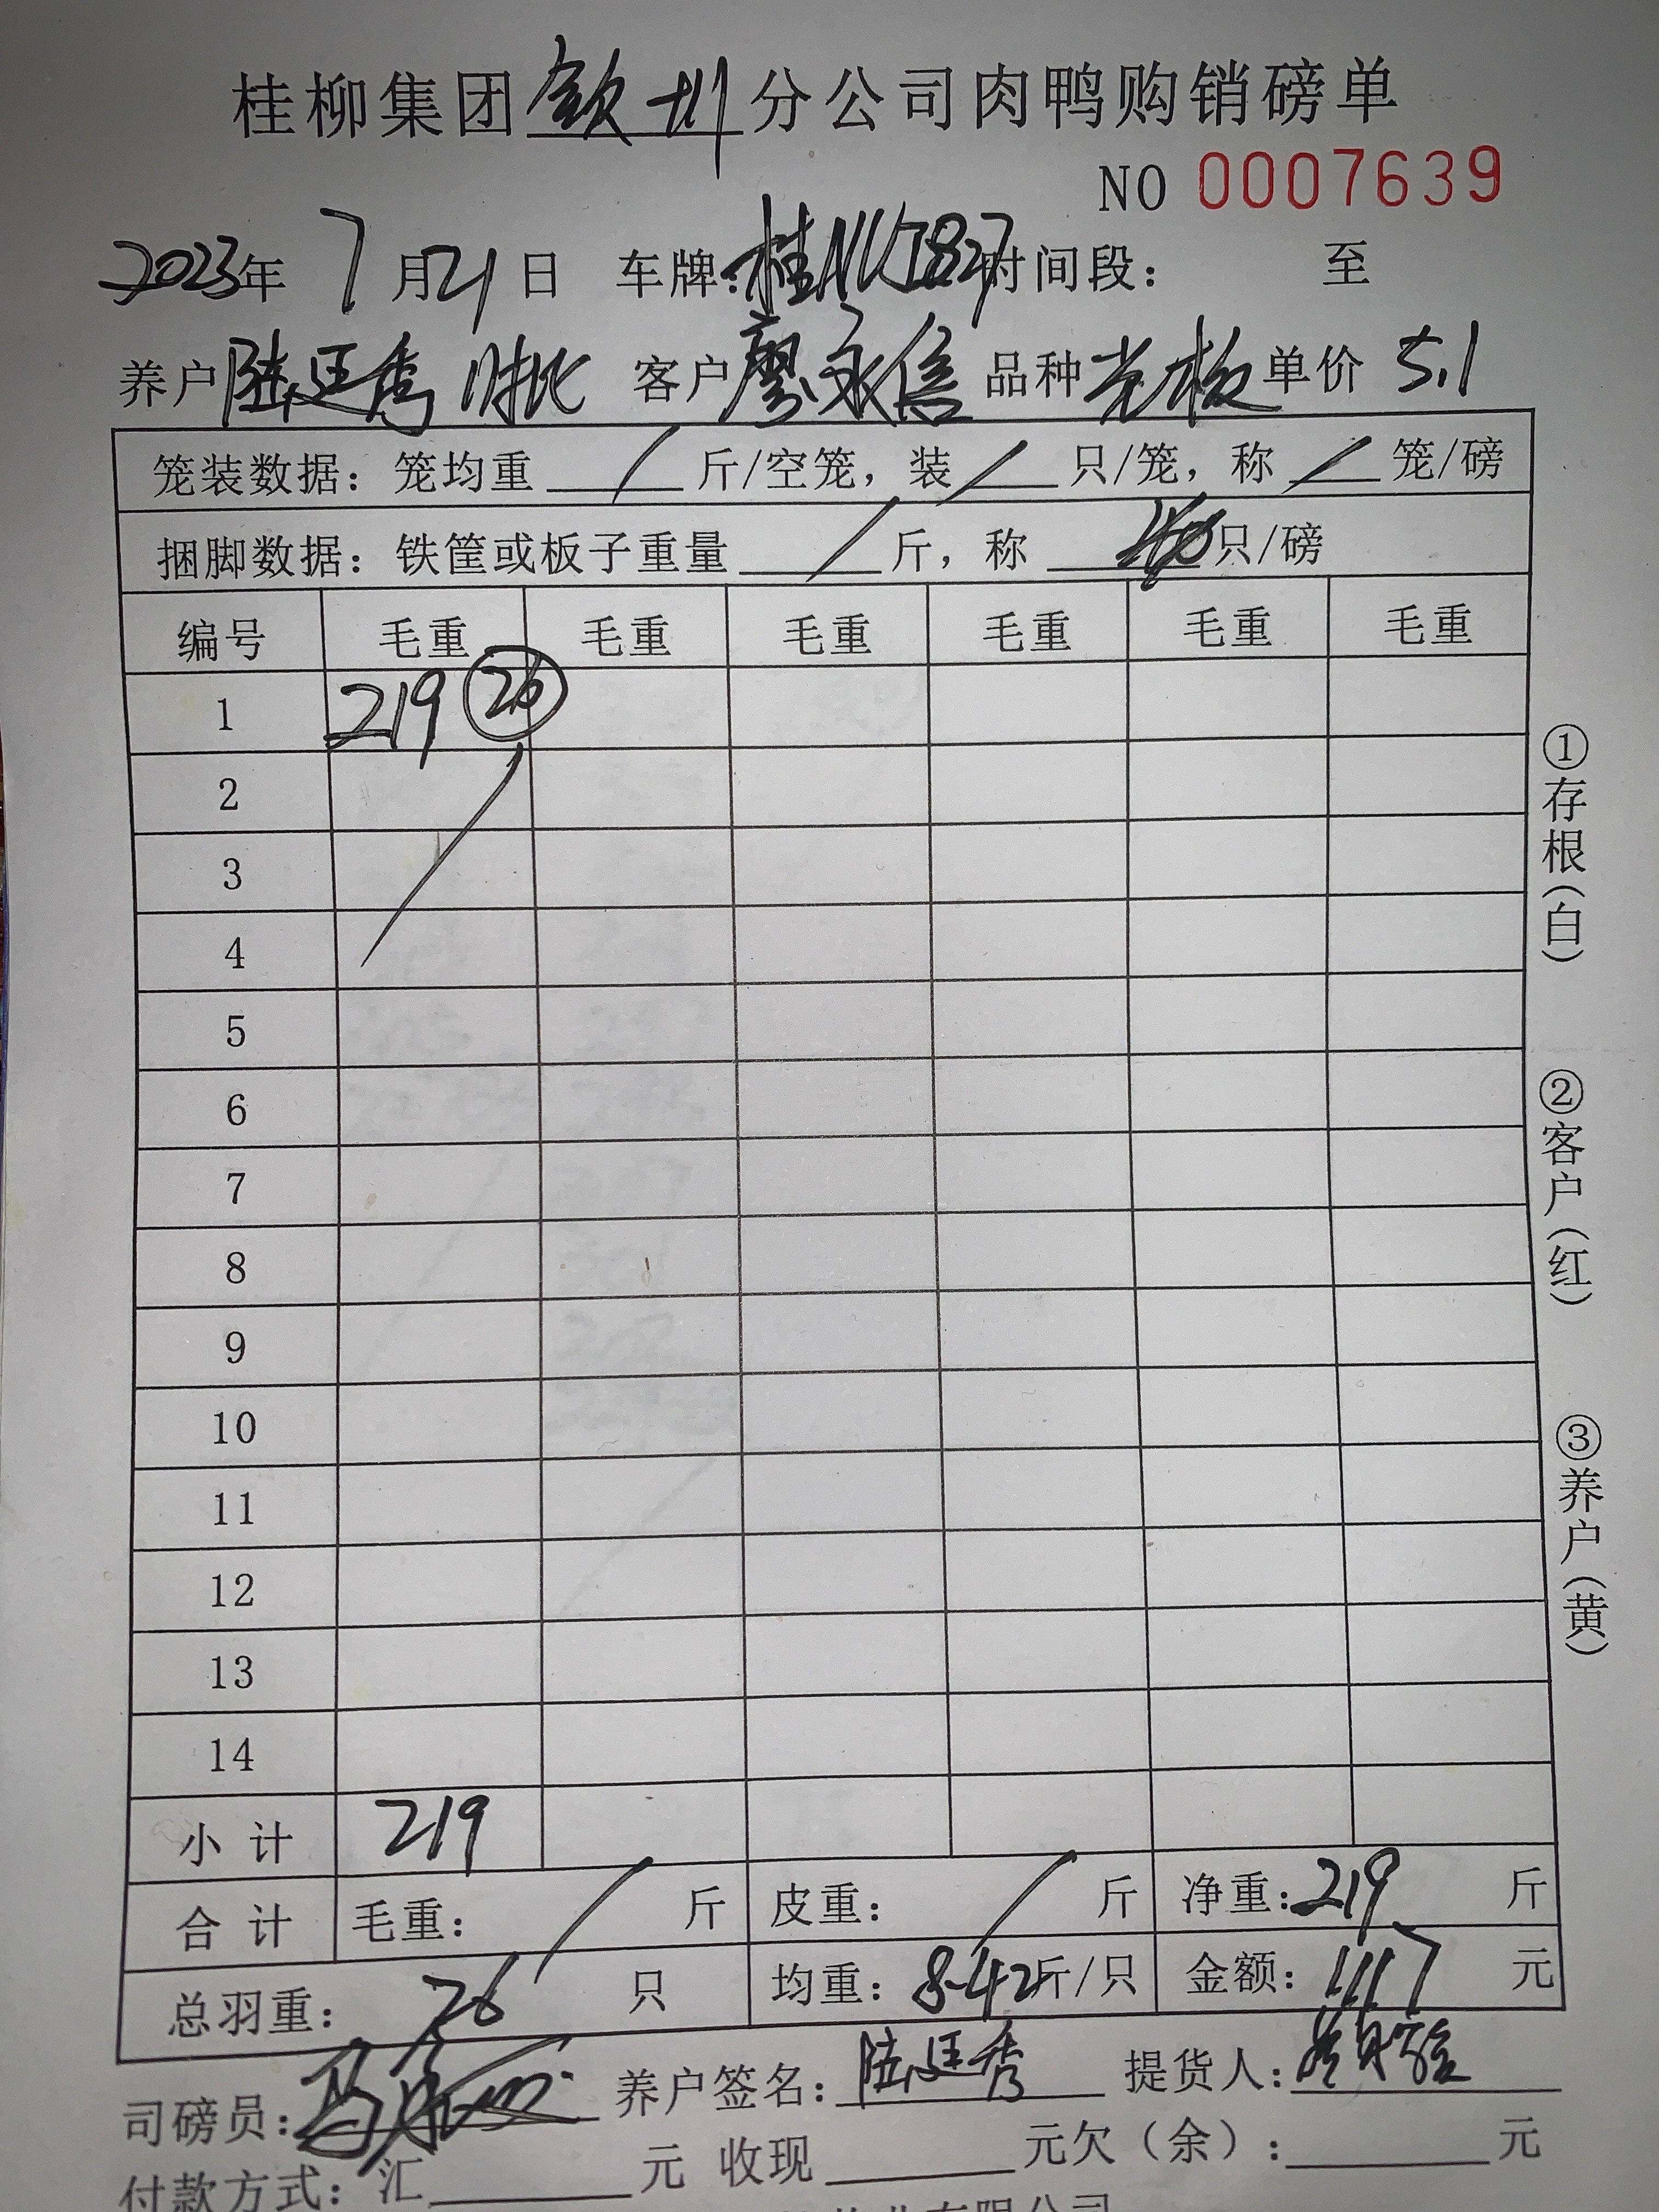 桂柳集团钦州分公司肉鸭购销磅单
NO 0007639
2023年 7月21日 车牌:桂NU5827时间段: 至
养户陆廷秀 客户廖永信 品种 单价 5.1
笼装数据: 笼均重 / 斤/空笼, 装 / 只/笼, 称 / 笼/磅
捆脚数据: 铁筐或板子重量 / 斤, 称 只/磅
编号 毛重 毛重 毛重 毛重 毛重 毛重
1 219 26
2
3
4
5
6
7
8
9
10
11
12
13
14
小计 219
合计 毛重: / 斤 皮重: / 斤 净重:219 斤
总羽重: 26 只 均重: 8.42斤/只 金额: 1117 元
司磅员: 养户签名:陆廷秀 提货人:
付款方式: 汇 元 收现 元欠(余): 元
①存根(白)
②客户(红)
③养户(黄)